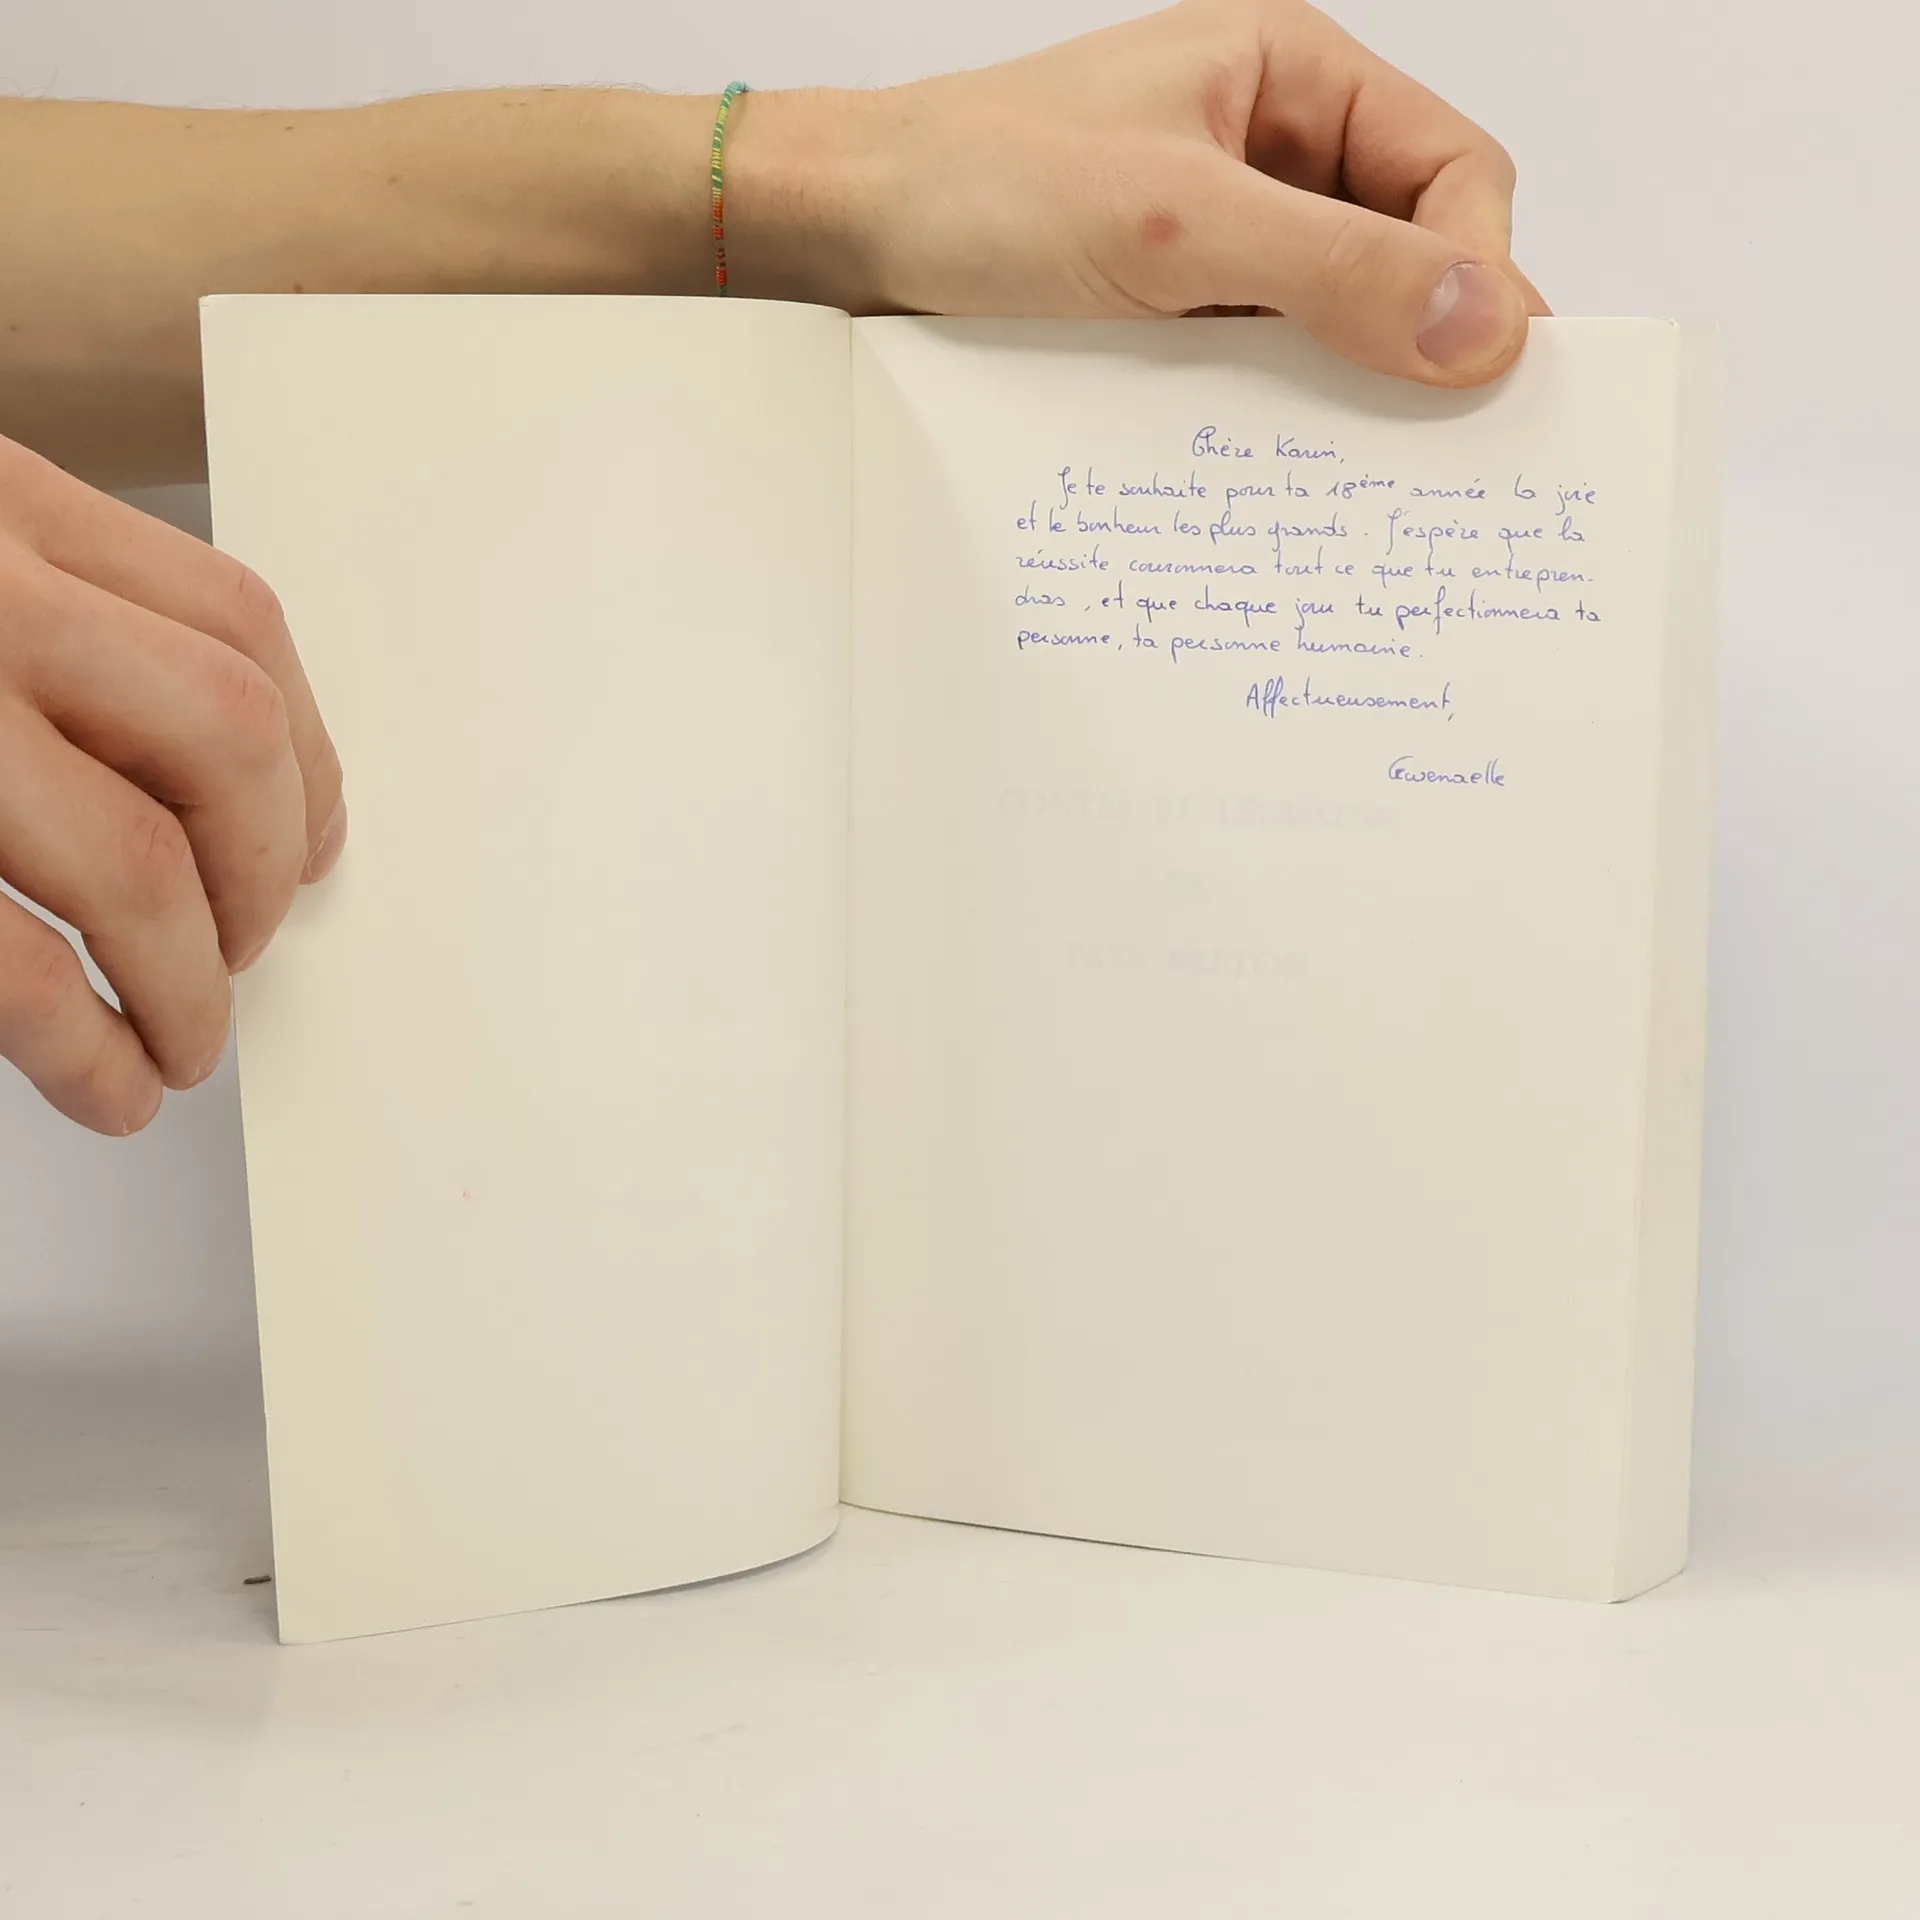 Chère Karin,
Je te souhaite pour ta 18ème année la joie
et le bonheur les plus grands. J'espère que la
réussite couronnera tout ce que tu entrepren-
dras, et que chaque jour tu perfectionnera ta
personne, ta personne humaine.
Affectueusement,
Gwenaelle
CONTES ET LÉGENDES
DE
PAYS BRETON